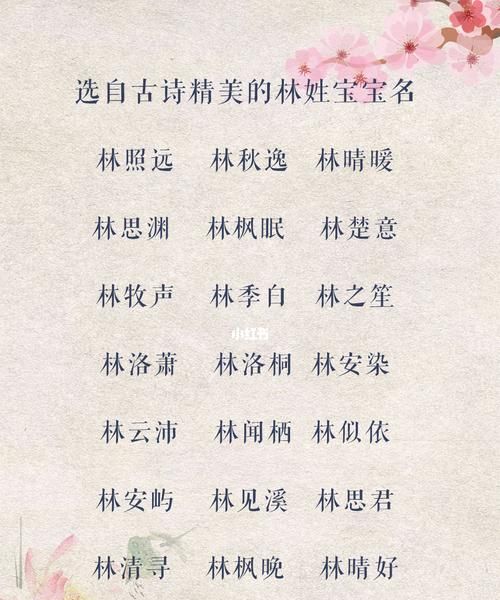 选自古诗精美的林姓宝宝名
林照远 林秋逸 林晴暖
林思渊 林枫眠 林楚意
林牧声 林季白 林之笙
小红书
林洛萧 林洛桐 林安染
林云沛 林闻栖 林似依
林安屿 林见溪 林思君
林清寻 林枫晚 林晴好